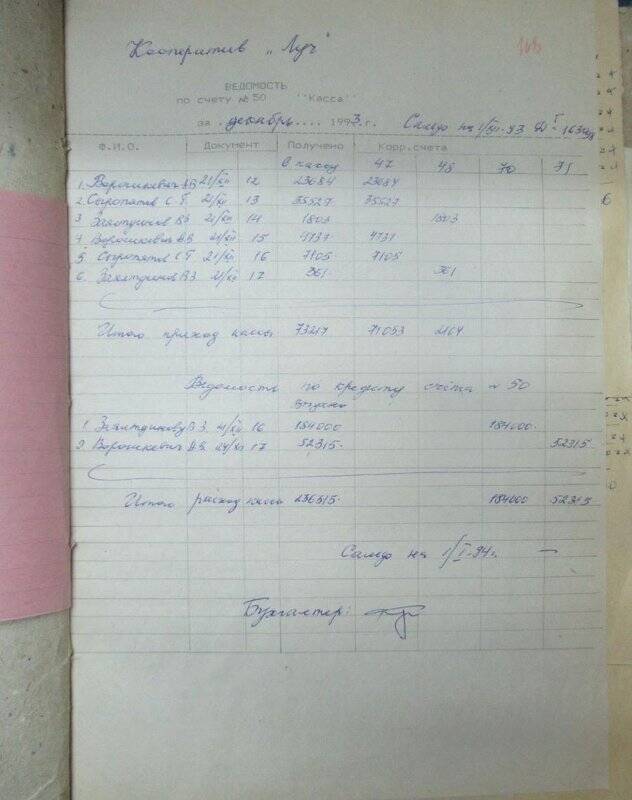 Кооператив „Луч"
168
ВЕДОМОСТЬ
по счету №50 ''Касса''
за декабрь.... 1993.г. Сальдо на 1/XII-93 Дт
Ф.И.О. Документ Получено Корр.счета
в кассу 47 48 70 71
1. Ворошкевич А.В. 21/XII 12 23684 23684
2. Сыропятов С.Г. 21/XII 13 35527 35527
3 Захлтдинов В.З. 21/XII 14 1803 1803
4. Ворошкевич А.В. 21/XII 15 4737 4737
5. Сыропятов С.Г. 21/XII 16 7105 7105
6. Захлтдинов В.З. 21/XII 17 361 361
Итого приход кассы 73217 71053 2164
Ведомость по кредиту счёта № 50
1. Захлтдинову В.З. 21/XII 16 184000 184000
2. Ворошкевич А.В. 17 52315 52315
Итого расход кассы 236315 184000 52315
Сальдо на 1/I-94г. —
Бухгалтер: